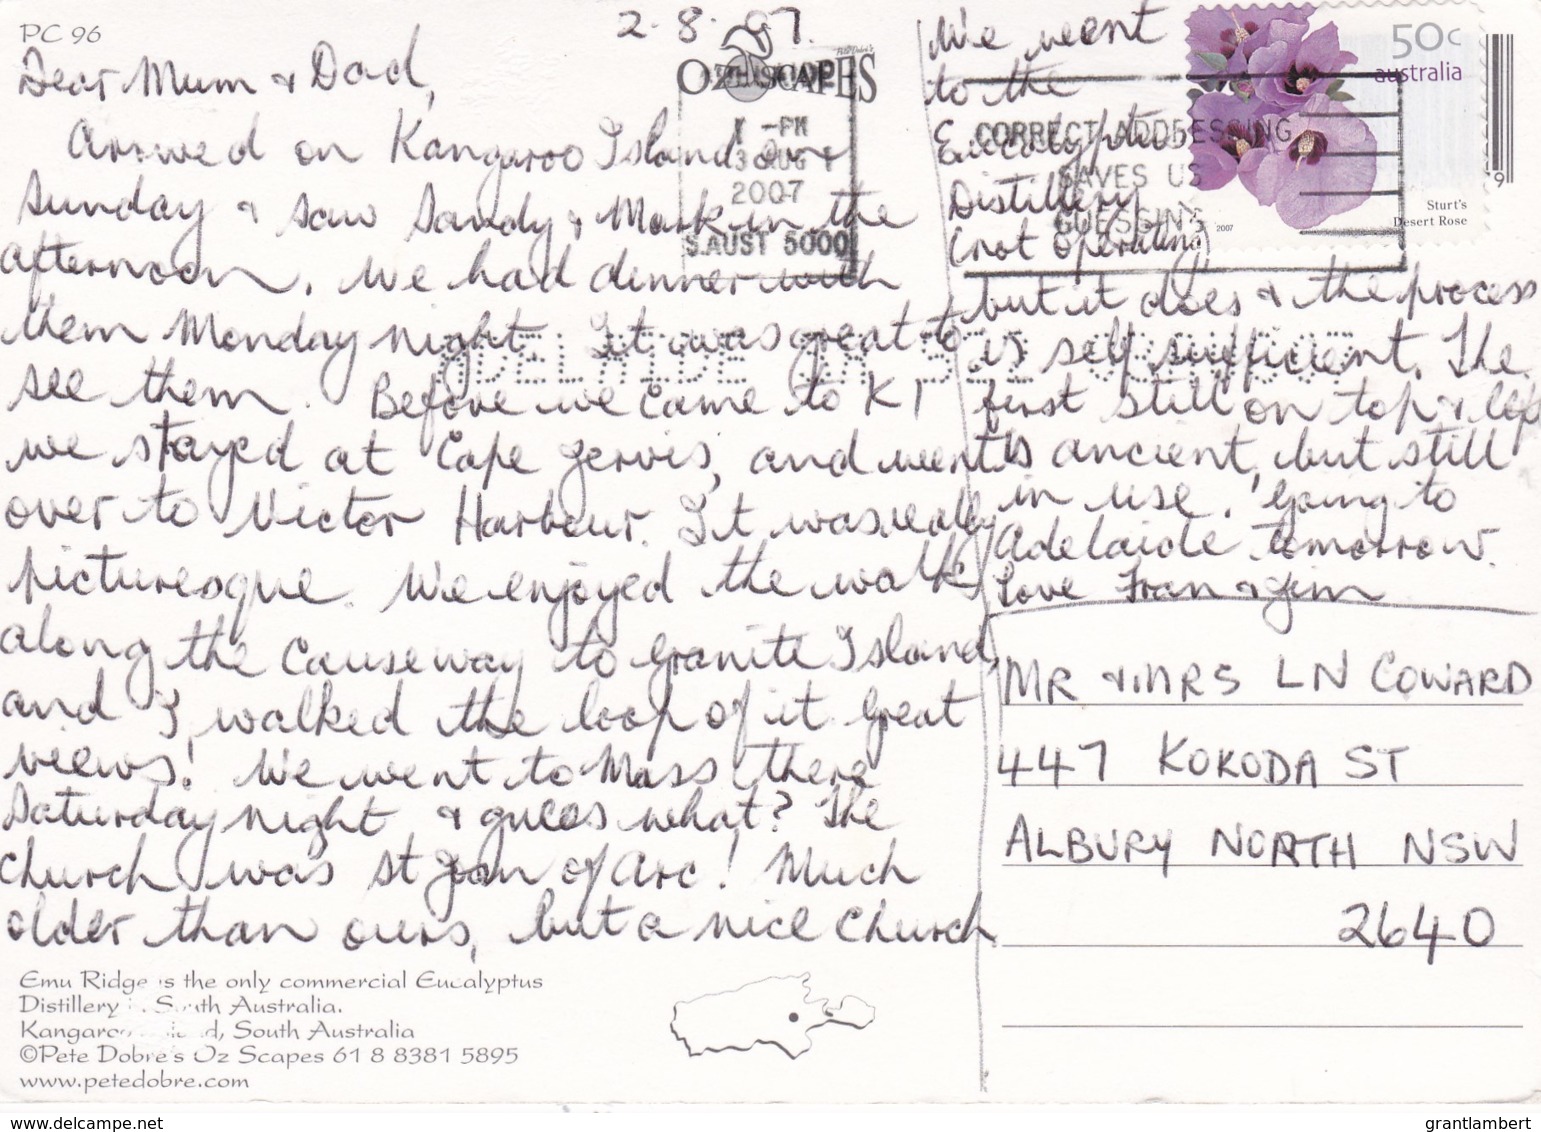 PC 96
2.8.07.
Dear Mum & Dad,
Arrived on Kangaroo Island on
Sunday & saw Sandy & Mark in the
afternoon. We had dinner with
them Monday night. It was great to
see them. Before we came to KI
we stayed at Cape Jervis, and went
over to Victor Harbour. It was really
picturesque. We enjoyed the walk
along the Causeway to Granite Island,
and I walked the loop of it. Great
views! We went to Mass there
Saturday night & guess what? The
Church was St Joan of Arc! Much
older than ours, but a nice Church
Emu Ridge is the only commercial Eucalyptus
Distillery in South Australia.
Kangaroo Island, South Australia
©Pete Dobre's Oz Scapes 61 8 8381 5895
www.petedobre.com
OZ SCAPES
-PM
2007
S.AUST 5000
We went
to the
Eucalyptus
Distillery
(not operating)
but it does & the process
is self sufficient. The
first still on top & left
is ancient, but still
in use. Going to
Adelaide tomorrow.
Love Fran & Jim
CORRECT ADDRESSING
SAVES US
GUESSING
50c
australia
Sturt's
Desert Rose
2007
9
MR & MRS LN COWARD
447 KOKODA ST
ALBURY NORTH NSW
2640
grantlambert